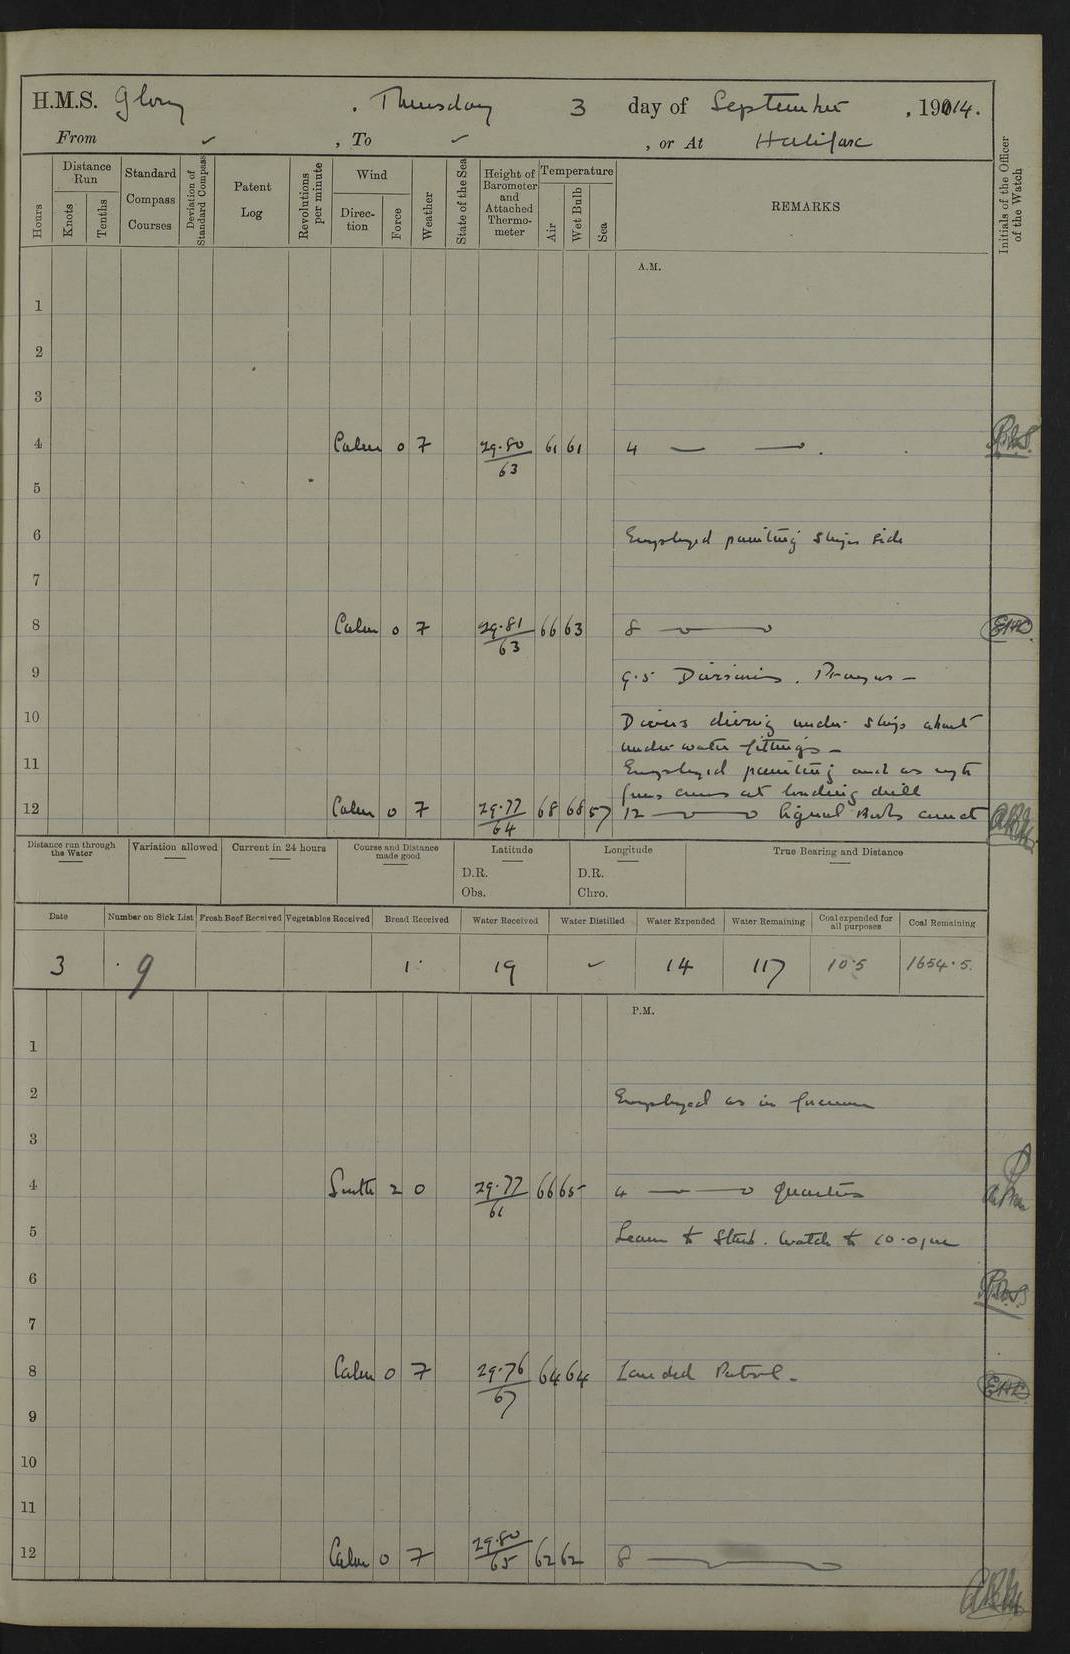 H.M.S. Glory, Thursday 3 day of September, 1914.
From ✓, To ✓, or At Halifax
Hours
Distance Run
Knots
Tenths
Standard Compass Courses
Deviation of Standard Compass
Patent Log
Revolutions per minute
Wind
Direction
Force
Weather
State of the Sea
Height of Barometer and Attached Thermometer
Temperature
Air
Wet Bulb
Sea
REMARKS
Initials of the Officer of the Watch
A.M.
1
2
3
4 Calm 0 7 29.80/63 61 61 4
5
6 Employed painting ships side
7
8 Calm 0 7 29.81/63 66 63 8
9 9.5 Divisions. Prayers —
10 Divers diving under ships about
under water fittings —
11 Employed painting and as
guns crews at loading drill
12 Calm 0 7 29.77/64 68 68 57 12 Signal Books correct
Distance run through the Water
Variation allowed
Current in 24 hours
Course and Distance made good
Latitude
D.R.
Obs.
Longitude
D.R.
Chro.
True Bearing and Distance
Date Number on Sick List Fresh Beef Received Vegetables Received Bread Received Water Received Water Distilled Water Expended Water Remaining Coal expended for all purposes Coal Remaining
3 9 1 19 ✓ 14 117 10.5 1654.5.
P.M.
1
2 Employed as in forenoon
3
4 South 2 0 29.77/61 66 65 4 Quarters
5 Leave to Starb. Watch to 10.0 pm
6
7
8 Calm 0 7 29.76/67 64 64 Landed Patrol.
9
10
11
12 Calm 0 7 29.80/65 62 62 8